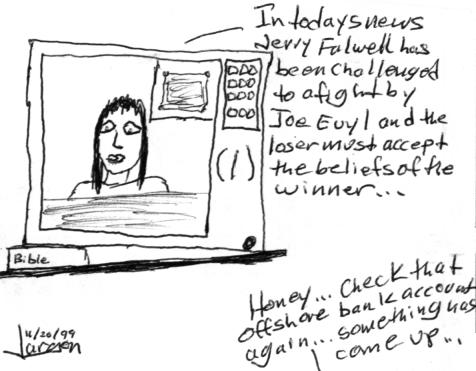 In todays news
Jerry Falwell has
been challenged
to a fight by
Joe Euyl and the
loser must accept
the beliefs of the
winner...
Bible
Honey... Check that
offshore bank account
again... something has
come up...
11/20/99
Larson